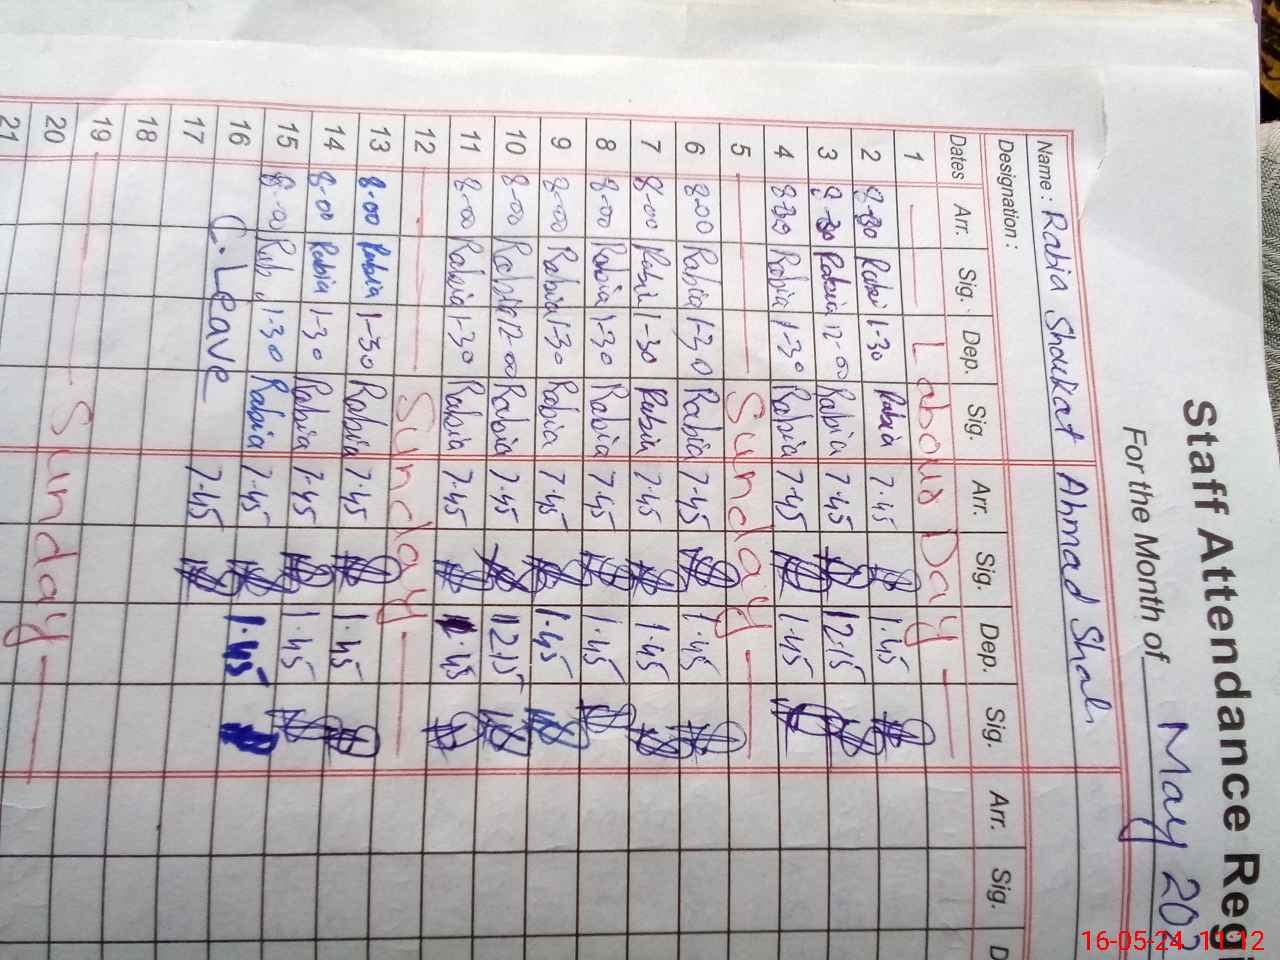 Staff Attendance Regi
For the Month of May 202
Name : Rabia Shoukat Ahmad Shah
Designation :
Dates Arr. Sig. Dep. Sig. Arr. Sig. Dep. Sig. Arr. Sig. D
1 Labour Day
2 8-30 Rabi 1-30 Rabia 7.45 1.45
3 8-30 Rabia 12-00 Rabia 7.45 12.15
4 8-30 Rabia 1-30 Rabia 7.45 1.45
5 Sunday
6 8-00 Rabia 1-30 Rabia 7.45 1.45
7 8-00 Rabi 1-30 Rabia 7.45 1.45
8 8-00 Rabia 1-30 Rabia 7.45 1.45
9 8-00 Rabia 1-30 Rabia 7.45 1.45
10 8-00 Rabia 12-00 Rabia 7.45 12.15
11 8-00 Rabia 1-30 Rabia 7.45
12 Sunday
13 8-00 Rabia 1-30 Rabia 7.45 1.45
14 8-00 Rabia 1-30 Rabia 7.45 1.45
15 8-00 Rab 1-30 Rabia 7.45 1.45
16 C. Leave 7.45
17
18
19 Sunday
20
21
16-05-24 11:12